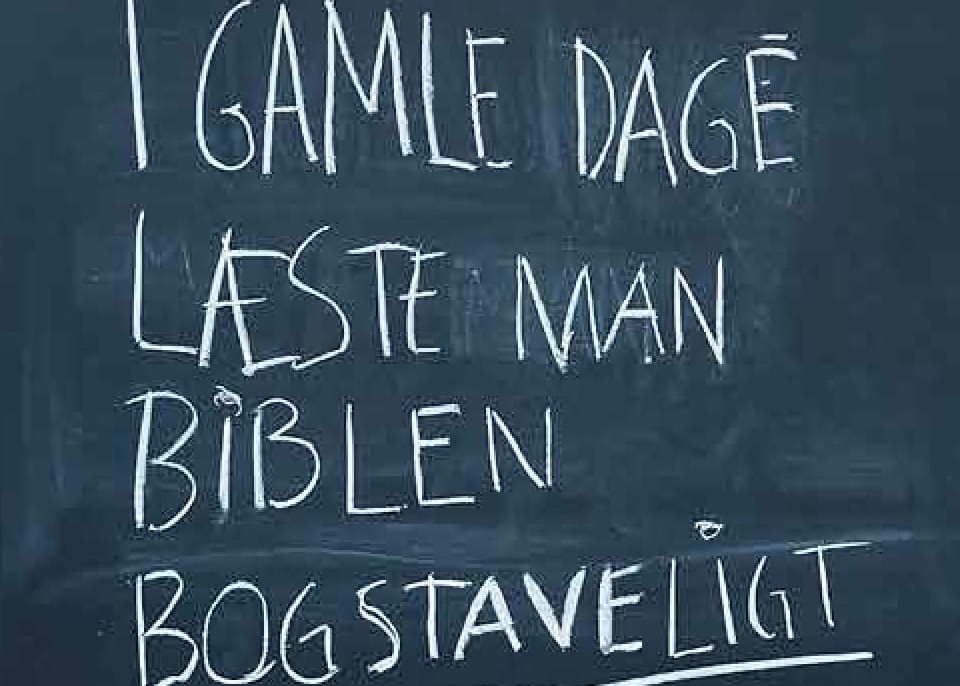 I GAMLE DAGĒ
LÆSTE MAN
BIBLEN
BOGSTAVELIGT